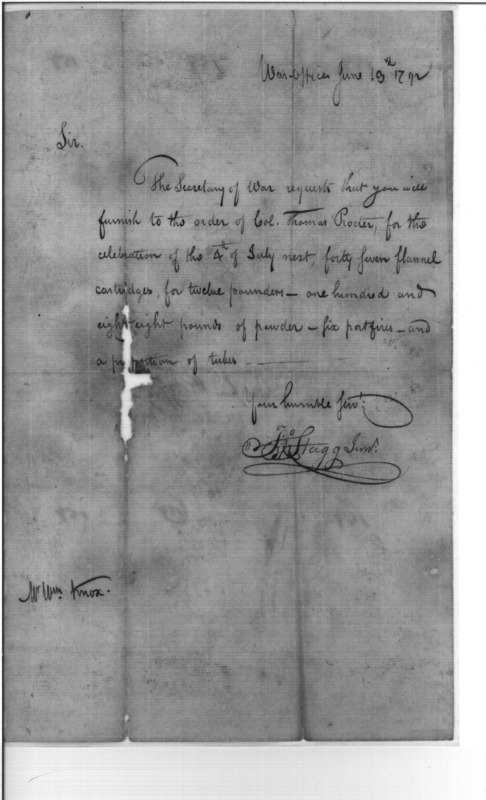 War-office June 13th 1792
Sir.
The Secretary of War requests that you will
furnish to the order of Col. Thomas Procter, for the
celebration of the 4th of July next, forty seven flannel
cartridges, for twelve pounders — one hundred and
eighty eight pounds of powder — six portfires — and
a proportion of tubes —
Your humble Servt.
Jno Stagg Junr.
Mr Wm Knox.